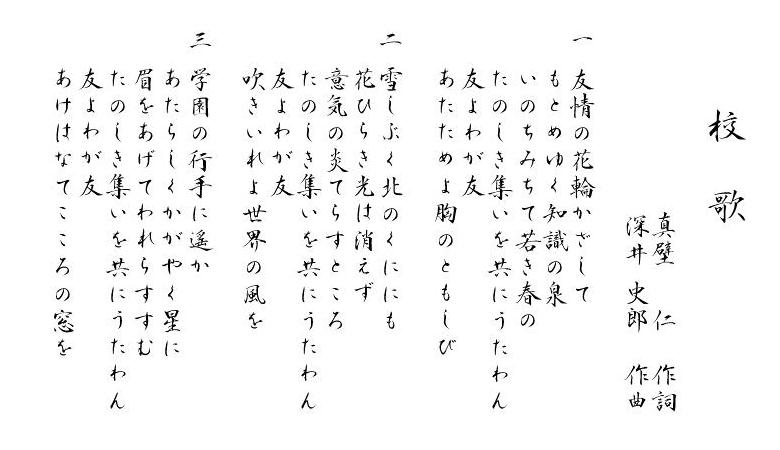 校歌
真壁 仁 作詞
深井 史郎 作曲
一 友情の花輪かざして
もとめゆく知識の泉
いのちみちて若き春の
たのしき集いを共にうたわん
友よわが友
あたためよ胸のともしび
二 雪しぶく北のくににも
花ひらき光は消えず
意気の炎てらすところ
たのしき集いを共にうたわん
友よわが友
吹きいれよ世界の風を
三 学園の行手に遙か
あたらしくかがやく星に
眉をあげてわれらすすむ
たのしき集いを共にうたわん
友よわが友
あけはなてこころの窓を